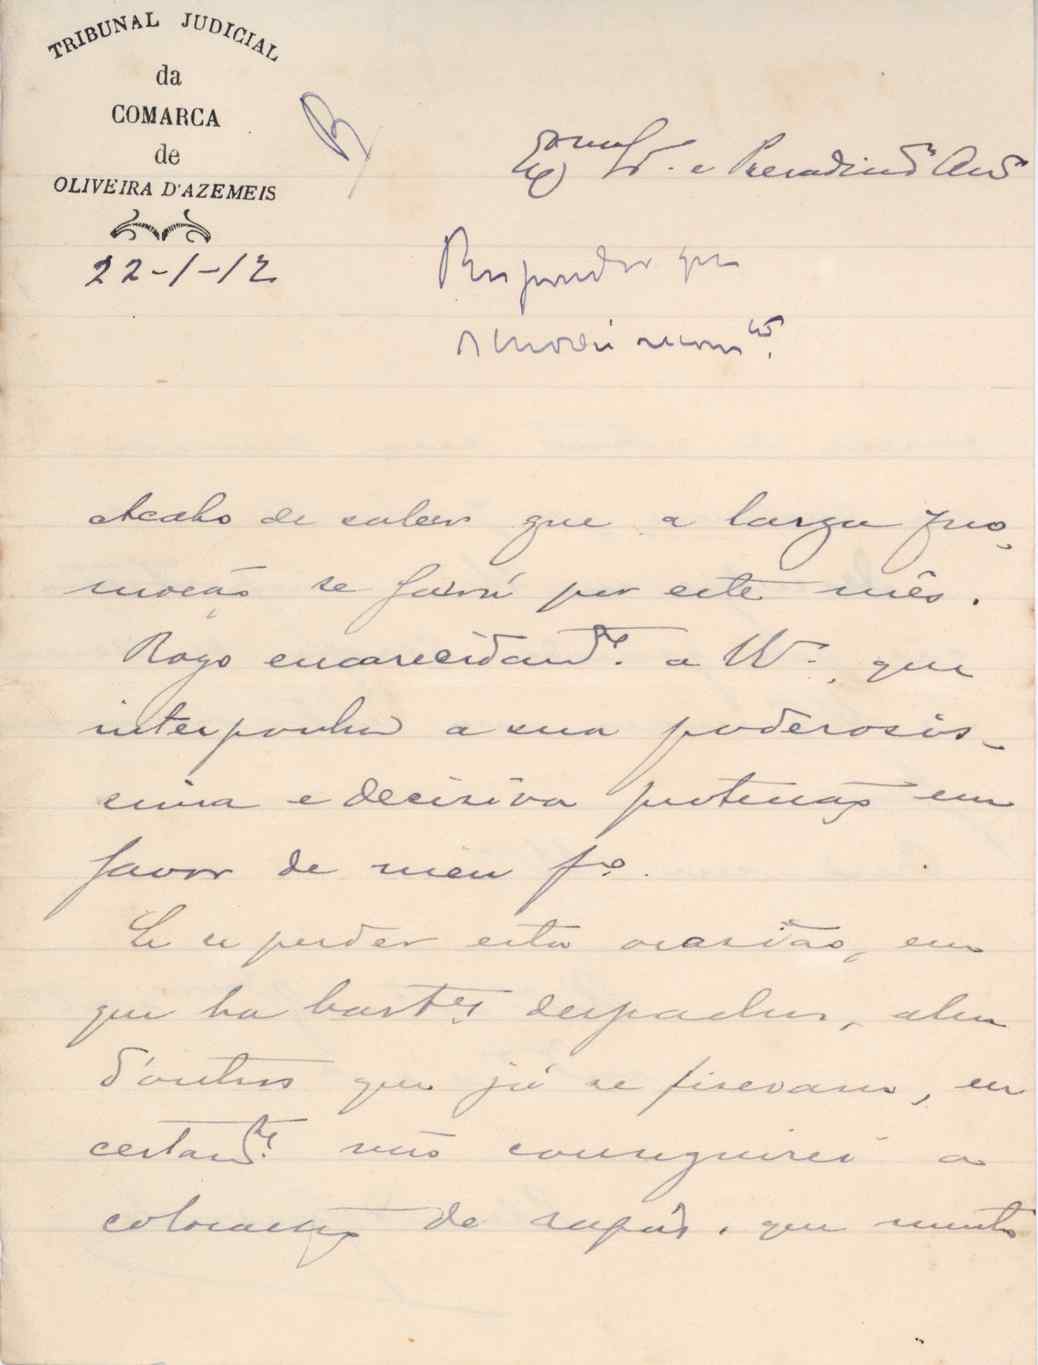 TRIBUNAL JUDICIAL
da
COMARCA
de
OLIVEIRA D'AZEMEIS
22-1-12
Exmo Sr. e Presadissº Amº
Responder que
Acabo de saber que a larga pro-
moção se fará por este mês.
Rogo encarecidamte. a V.., que
interponha a sua poderosis-
sima e decisiva protecção em
favor de meu fº.
Se se perder esta occasião, em
que ha bastes. despachos, alem
d'outros que já se fiseram, eu
certamte. não conseguirei a
colocação do rapás, que muito